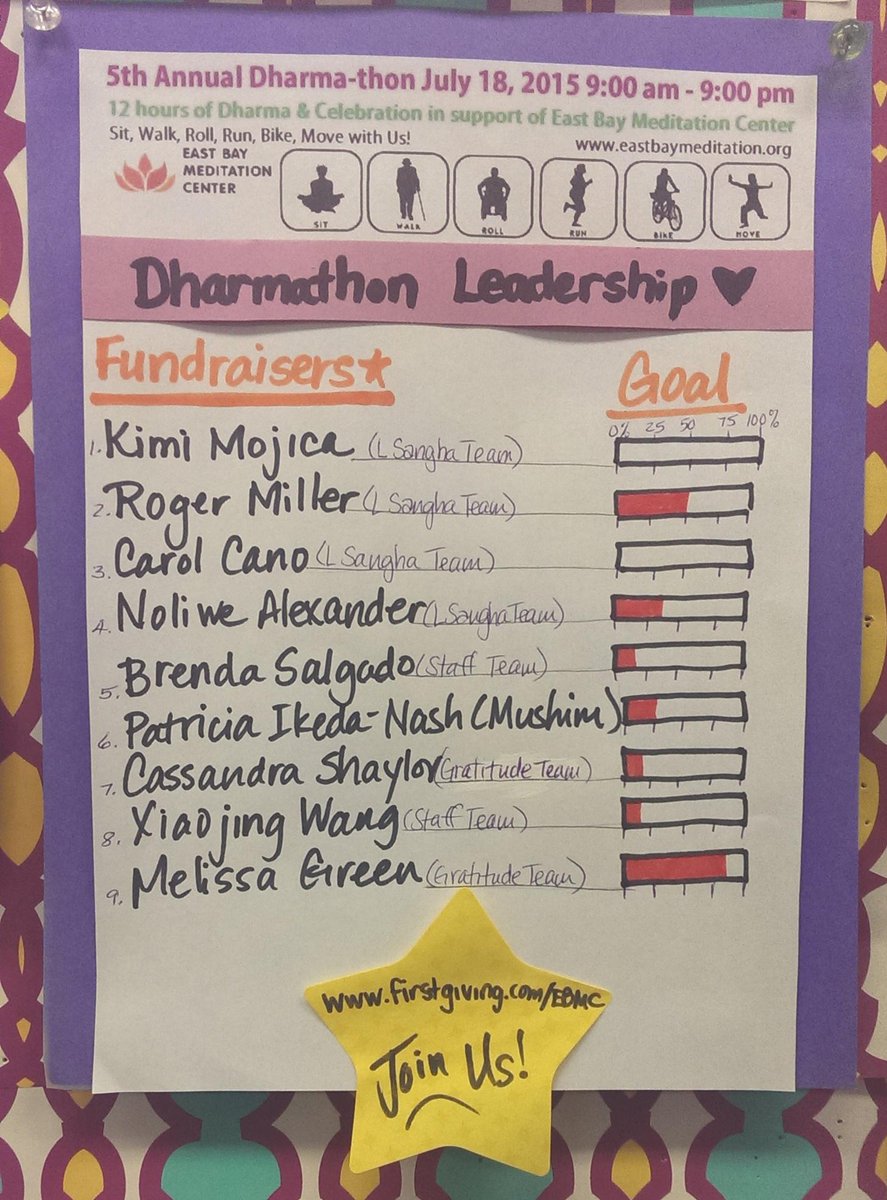 5th Annual Dharma-thon July 18, 2015 9:00 am - 9:00 pm
12 hours of Dharma & Celebration in support of East Bay Meditation Center
Sit, Walk, Roll, Run, Bike, Move with Us!
www.eastbaymeditation.org
EAST BAY
MEDITATION
CENTER
SIT WALK ROLL RUN BIKE MOVE
Dharmathon Leadership ♥
Fundraisers★ Goal
0% 25 50 75 100%
1. Kimi Mojica (L Sangha Team)
2. Roger Miller (L Sangha Team)
3. Carol Cano (L Sangha Team)
4. Noliwe Alexander (L Sangha Team)
5. Brenda Salgado (Staff Team)
6. Patricia Ikeda-Nash (Mushim)
7. Cassandra Shaylor (Gratitude Team)
8. Xiaojing Wang (Staff Team)
9. Melissa Green (Gratitude Team)
www.firstgiving.com/EBMC
Join Us!